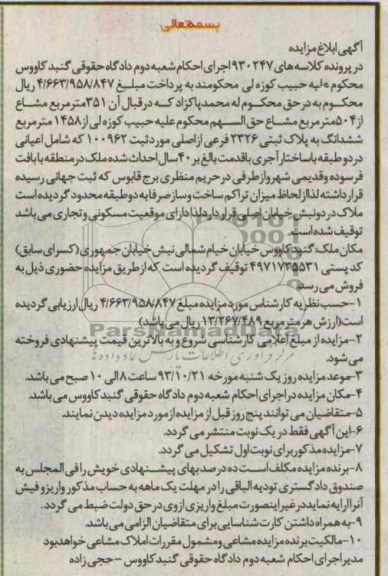 بسمه تعالی
آگهی ابلاغ مزایده
در پرونده کلاسه های ۹۳۰۲۴۷ اجرای احکام شعبه دوم دادگاه حقوقی گنبد کاووس
محکوم علیه حبیب کوزه لی محکومند به پرداخت مبلغ ۴/۶۶۳/۹۵۸/۸۴۷ ریال
محکوم به در حق محکوم له محمد پاکزاد که در قبال آن ۳۵۱ مترمربع مشاع
از ۵۰۴ مترمربع مشاع حق السهم محکوم علیه حبیب کوزه لی از ۱۴۵۸ مترمربع
ششدانگ به پلاک ثبتی ۲۳۲۶ فرعی از اصلی مورد ثبت ۱۰۰۹۶۲ که شامل اعیانی
در دو طبقه با ساختار آجری با قدمت بالغ بر ۴۰ سال احداث شده ملک در منطقه با بافت
فرسوده و قدیمی شهر و از طرفی در حریم منظری برج قابوس که ثبت جهانی رسیده
قرار داشته لذا از لحاظ میزان تراکم ساخت و ساز صرفا به دو طبقه محدود گردیده است
ملاک در دو نبش خیابان اصلی قرار دارد لذا دارای موقعیت مسکونی و تجاری می باشد
توقیف شده است.
مکان ملک: گنبد کاووس خیابان خیام شمالی نبش خیابان جمهوری (کسرای سابق)
کد پستی ۴۹۷۱۷۳۵۵۳۱ توقیف گردیده است که از طریق مزایده حضوری ذیل به
فروش می رسد
۱-حسب نظریه کارشناس مورد مزایده مبلغ ۴/۶۶۳/۹۵۸/۸۴۷ ریال ارزیابی گردیده
است (ارزش هر مترمربع ۱۳/۲۶۷/۴۸۹ ریال می باشد)
۲-مزایده از مبلغ اعلامی کارشناسی شروع و به بالاترین قیمت پیشنهادی فروخته
می شود.
۳-موعد مزایده روز یک شنبه مورخه ۹۳/۱۰/۲۱ ساعت ۸ الی ۱۰ صبح می باشد.
۴-مکان مزایده در اجرای احکام شعبه دوم دادگاه حقوقی گنبد کاووس می باشد.
۵-متقاضیان می توانند پنج روز قبل از مزایده از مورد مزایده دیدن نمایند.
۶-این آگهی فقط در یک نوبت منتشر می گردد.
۷-مزایده مذکور برای نوبت اول تشکیل می گردد.
۸-برنده مزایده مکلف است ده درصد بهای پیشنهادی خویش را فی المجلس به
صندوق دادگستری تودیه الباقی را در مهلت یک ماهه به حساب مذکور واریز و فیش
آن را ارایه نماید در غیر اینصورت مبلغ واریزی از وی در حق دولت ضبط می گردد.
۹-به همراه داشتن کارت شناسایی برای متقاضیان الزامی می باشد.
۱۰-مالکیت برنده مزایده مشاعی و مشمول مقررات املاک مشاعی خواهد بود
مدیر اجرای احکام شعبه دوم دادگاه حقوقی گنبد کاووس - حجی زاده